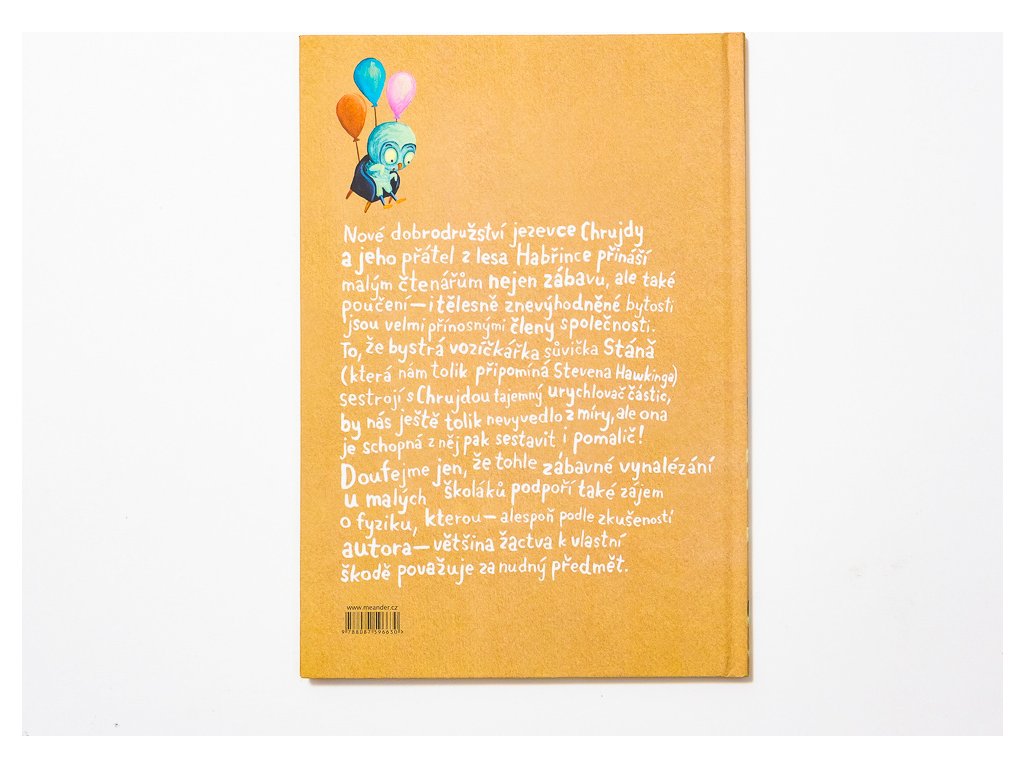 Nové dobrodružství jezevce Chrujdy
a jeho přátel z lesa Habřince přináší
malým čtenářům nejen zábavu, ale také
poučení – i tělesně znevýhodněné bytosti
jsou velmi přínosnými členy společnosti.
To, že bystrá vozíčkářka sůvička Stáňa
(která nám tolik připomíná Stevena Hawkinga)
sestrojí s Chrujdou tajemný urychlovač částic,
by nás ještě tolik nevyvedlo z míry, ale ona
je schopná z něj pak sestavit i pomalič!
Doufejme jen, že tohle zábavné vynalézání
u malých školáků podpoří také zájem
o fyziku, kterou – alespoň podle zkušeností
autora – většina žactva k vlastní
škodě považuje za nudný předmět.
www.meander.cz
9 788087 596630 >